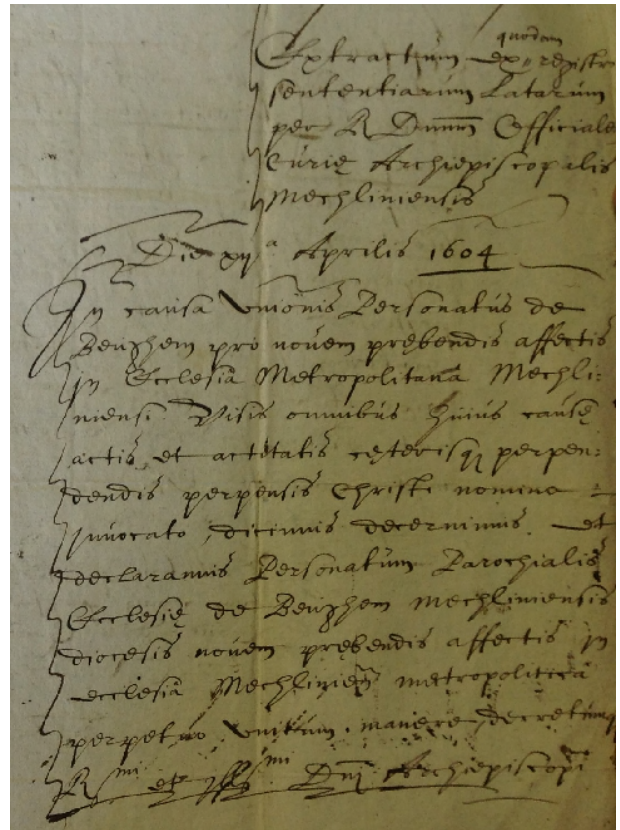 quodam
Extractum ex registro
sententiarum latarum
per R Dnum Officiale
Curię Archiepiscopalis
Mechliniensis
Die xijª Aprilis 1604
In causa Unionis Personatus de
Beughem pro novem prębendis affectis
in Ecclesia Metropolitana Mechli:
niensi Visis omnibus huius causę
actis, et actitatis cęterisq perpen:
dendis perpensis Christi nomine
invocato, dicimus decernimus et
declaramus Personatum Parochialis
Ecclesię de Beughem Mechliniensis
diocesis novem prębendis affectis in
ecclesia Mechlinien metropolitica
perpetuo unitum manere, decretumq
Rmi et Illmi Dni Archiepiscopi